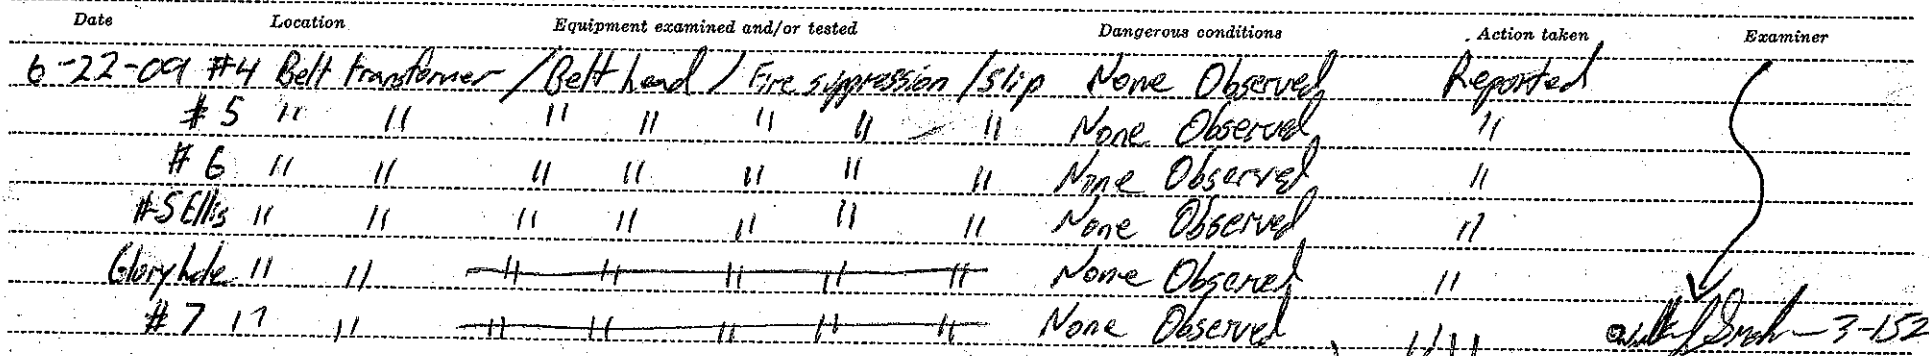 Date Location Equipment examined and/or tested Dangerous conditions Action taken Examiner
6-22-09 #4 Belt transformer / Belt head / Fire suppression / slip None Observed Reported
#5 " " " " " " " None Observed "
#6 " " " " " " " None Observed "
#5 Ellis " " " " " " " None Observed "
Glory hole " " " " " " " None Observed "
#7 " " " " " " " None Observed " "
3-152